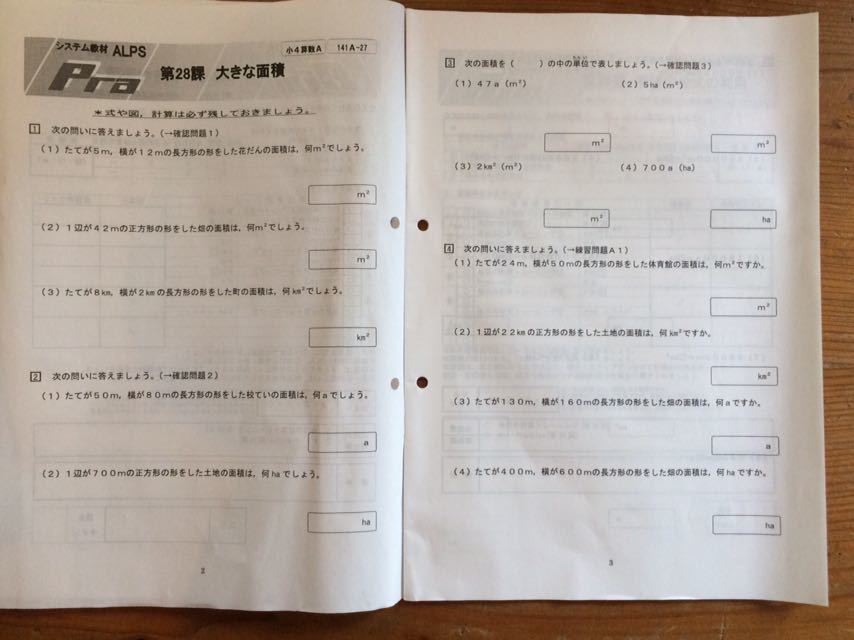 システム教材 ALPS
Pro
小4算数A
141A-27
第28課 大きな面積
*式や図，計算は必ず残しておきましょう。
1 次の問いに答えましょう。(→確認問題1)
(1) たてが5m，横が12mの長方形の形をした花だんの面積は，何m²でしょう。
m²
(2) 1辺が42mの正方形の形をした畑の面積は，何m²でしょう。
m²
(3) たてが8km，横が2kmの長方形の形をした町の面積は，何km²でしょう。
km²
2 次の問いに答えましょう。(→確認問題2)
(1) たてが50m，横が80mの長方形の形をした校ていの面積は，何aでしょう。
a
(2) 1辺が700mの正方形の形をした土地の面積は，何haでしょう。
ha
2
3 次の面積を( )の中の単位で表しましょう。(→確認問題3)
(1) 47a (m²) (2) 5ha (m²)
m² m²
(3) 2km² (m²) (4) 700a (ha)
m² ha
4 次の問いに答えましょう。(→練習問題A1)
(1) たてが24m，横が50mの長方形の形をした体育館の面積は，何m²ですか。
m²
(2) 1辺が22kmの正方形の形をした土地の面積は，何km²ですか。
km²
(3) たてが130m，横が160mの長方形の形をした畑の面積は，何aですか。
a
(4) たてが400m，横が600mの長方形の形をした畑の面積は，何haですか。
ha
3